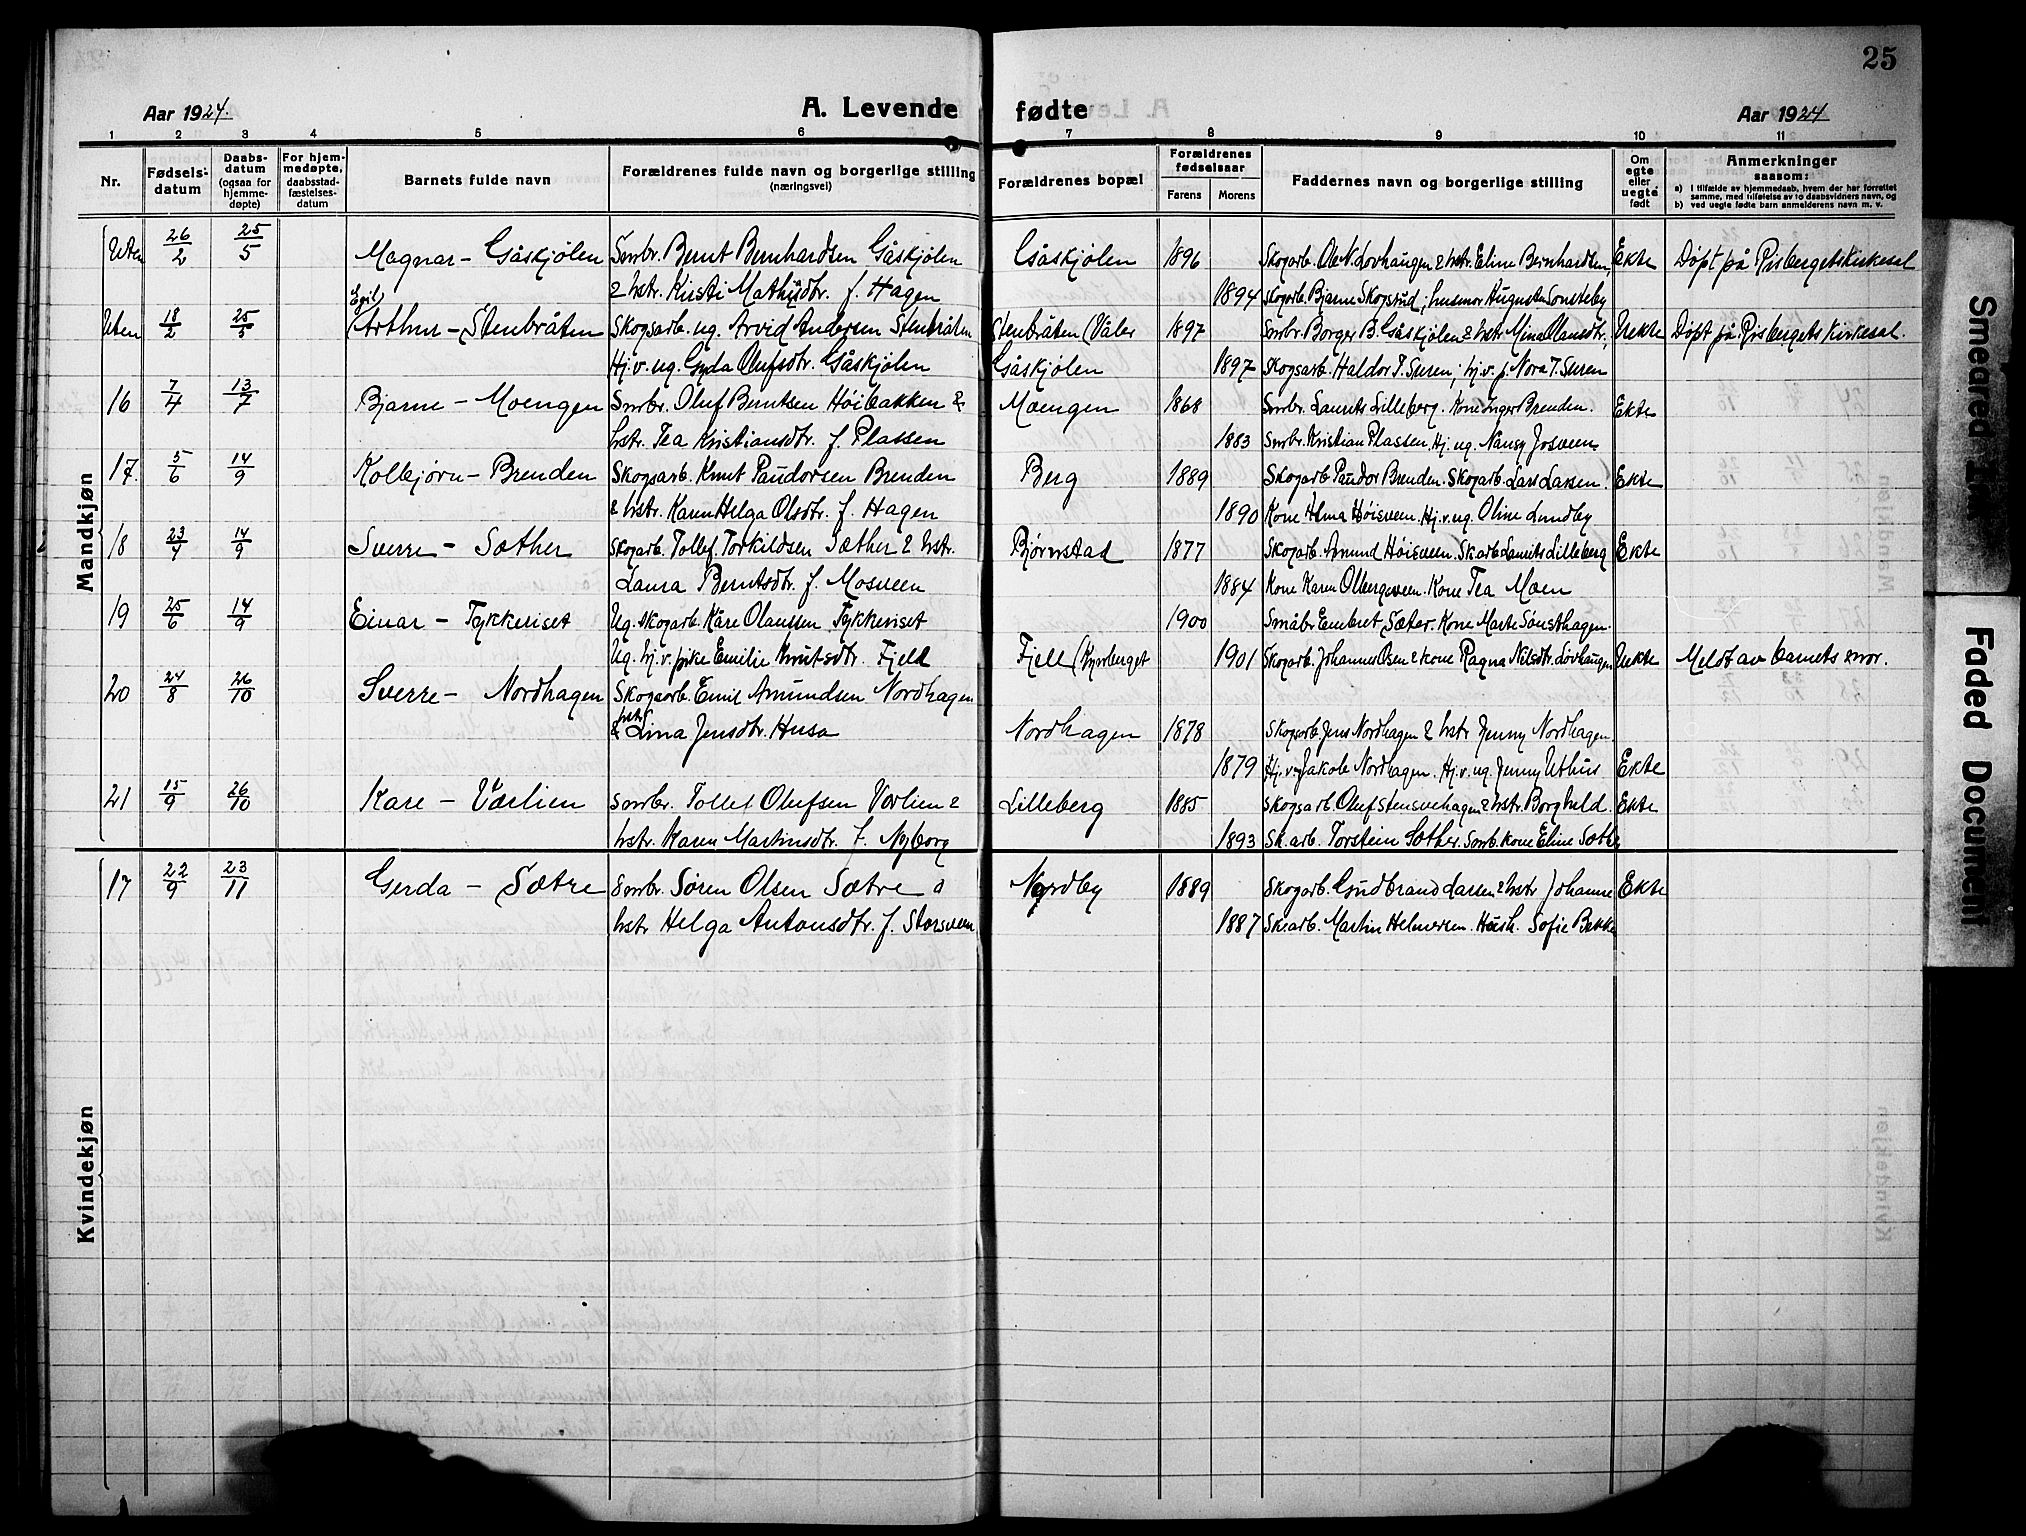 25
Aar 1924.
A. Levende fødte
Aar 1924
1 2 3 4 5 6 7 8 9 10 11
Nr.
Fødsels-datum
Daabs-datum (ogsaa for hjemme-døpte)
For hjem-medøpte, daabsstad-fæstelses-datum
Barnets fulde navn
Forældrenes fulde navn og borgerlige stilling (næringsvei)
Forældrenes bopæl
Forældrenes fødselsaar
Farens Morens
Faddernes navn og borgerlige stilling
Om egte eller uegte født
Anmerkninger saasom:
a) I tilfælde av hjemmedaab, hvem der har forrettet samme, med tilføielse av to daabsvidners navn, og
b) ved uegte fødte barn anmelderens navn m. v.
Mandkjøn
Uten 26/2 25/5 Magnar – Gåskjølen Smbr. Bernt Bernhardsen Gåskjølen Gåskjølen 1896 Skogarb. Ole N. Løvhaugen & hstr. Eline Bernhardsen Ekte Døpt på Risbergets kirkesal
& hstr. Kirsti Mathisdtr. f. Hagen 1894 Skogarb. Bjarne Skogstud; husmor Augusta Sønsteby
Egil
Uten 18/2 25/5 Arthur – Stenbråten Skogsarb. ug. Arvid Andersen Stenbråten Stenbråten (Våler 1897 Smbr. Borger B. Gåskjølen & hstr Mina Olausdtr, Uekte Døpt på Risbergets kirkesal.
Hj.v. ug. Gyda Olufsdtr. Gåskjølen Gåskjølen 1897 Skogsarb. Haldor T. Suren; hj.v. p. Nora T. Suren
16 7/4 13/7 Bjarne – Moengen Smbr. Oluf Berntsen Høibakken & Moengen 1868 Smbr. Laurits Lilleberg. Kone Inger Brenden. Ekte
hstr. Tea Kristiansdtr. f. Plassen 1883 Smbr. Kristian Plassen. Hj. ug. Nansy Josveen
17. 5/6 14/9 Kolbjørn – Brenden Skogsarb. Knut Paudorsen Brenden Berg 1889 Skogarb Paudor Brenden. Skogarb Lars Larsen. Ekte
& hstr. Karen Helga Olsdtr. f. Hagen 1890 Kone Helma Høisveen. Hj.v. ug. Oline Lundby
18 23/4 14/9 Sverre – Sæther Skogarb. Tollef Torkildsen Sæther & hstr. Bjørnstad 1877 Skogarb. Amund Høisveen. Skarb Laurits Lilleberg Ekte
Laura Berntsdtr. f. Mosveen 1884 Kone Karen Olbergsveen. Kone Tea Moen
19 25/6 14/9 Einar – Tykkeriset Ug. skogarb. Kåre Olaussen Tykkeriset 1900 Småbr Embret Sæter. Kone Marte Sønsthagen.
Ug. hj.v. pike Emilie Knutsdtr. Fjell Fjell (Kynberget 1901 Skogarb. Johannes Olsen & kone Ragna Nilsdtr. Løvhaugen Uekte Meldt av barnets mor.
20 24/8 26/10 Sverre – Nordhagen Skogsarb. Emil Amundsen Nordhagen
& hstr Lina Jensdtr. Husa Nordhagen 1878 Skogsarb Jens Nordhagen & hstr Jenny Nordhagen.
1879 Hj.v. Jakob Nordhagen. Hj.v. ug. Jenny Uthus Ekte
21 15/9 26/10 Kåre – Vårlien Smbr. Tollef Olufsen Vårlien & Lilleberg 1885 Skogsarb Oluf Stensvehagen & hstr. Borghild. Ekte
hstr. Karen Martinsdtr. f. Nyborg 1893 Sk.arb. Torstein Sæther. Smb. kone Eline Sæther
Kvindekjøn
17 22/9 23/11 Gerda – Sætre Smbr. Søren Olsen Sætre o Nordby 1889 Skogarb. Gudbrand Larsen & hstr Johanne Ekte
hstr Helga Antonsdtr. f. Storsveen 1887 Skarb. Martin Helmersen. Hush. Sofie Bekke
Smeared Ink
Faded Document